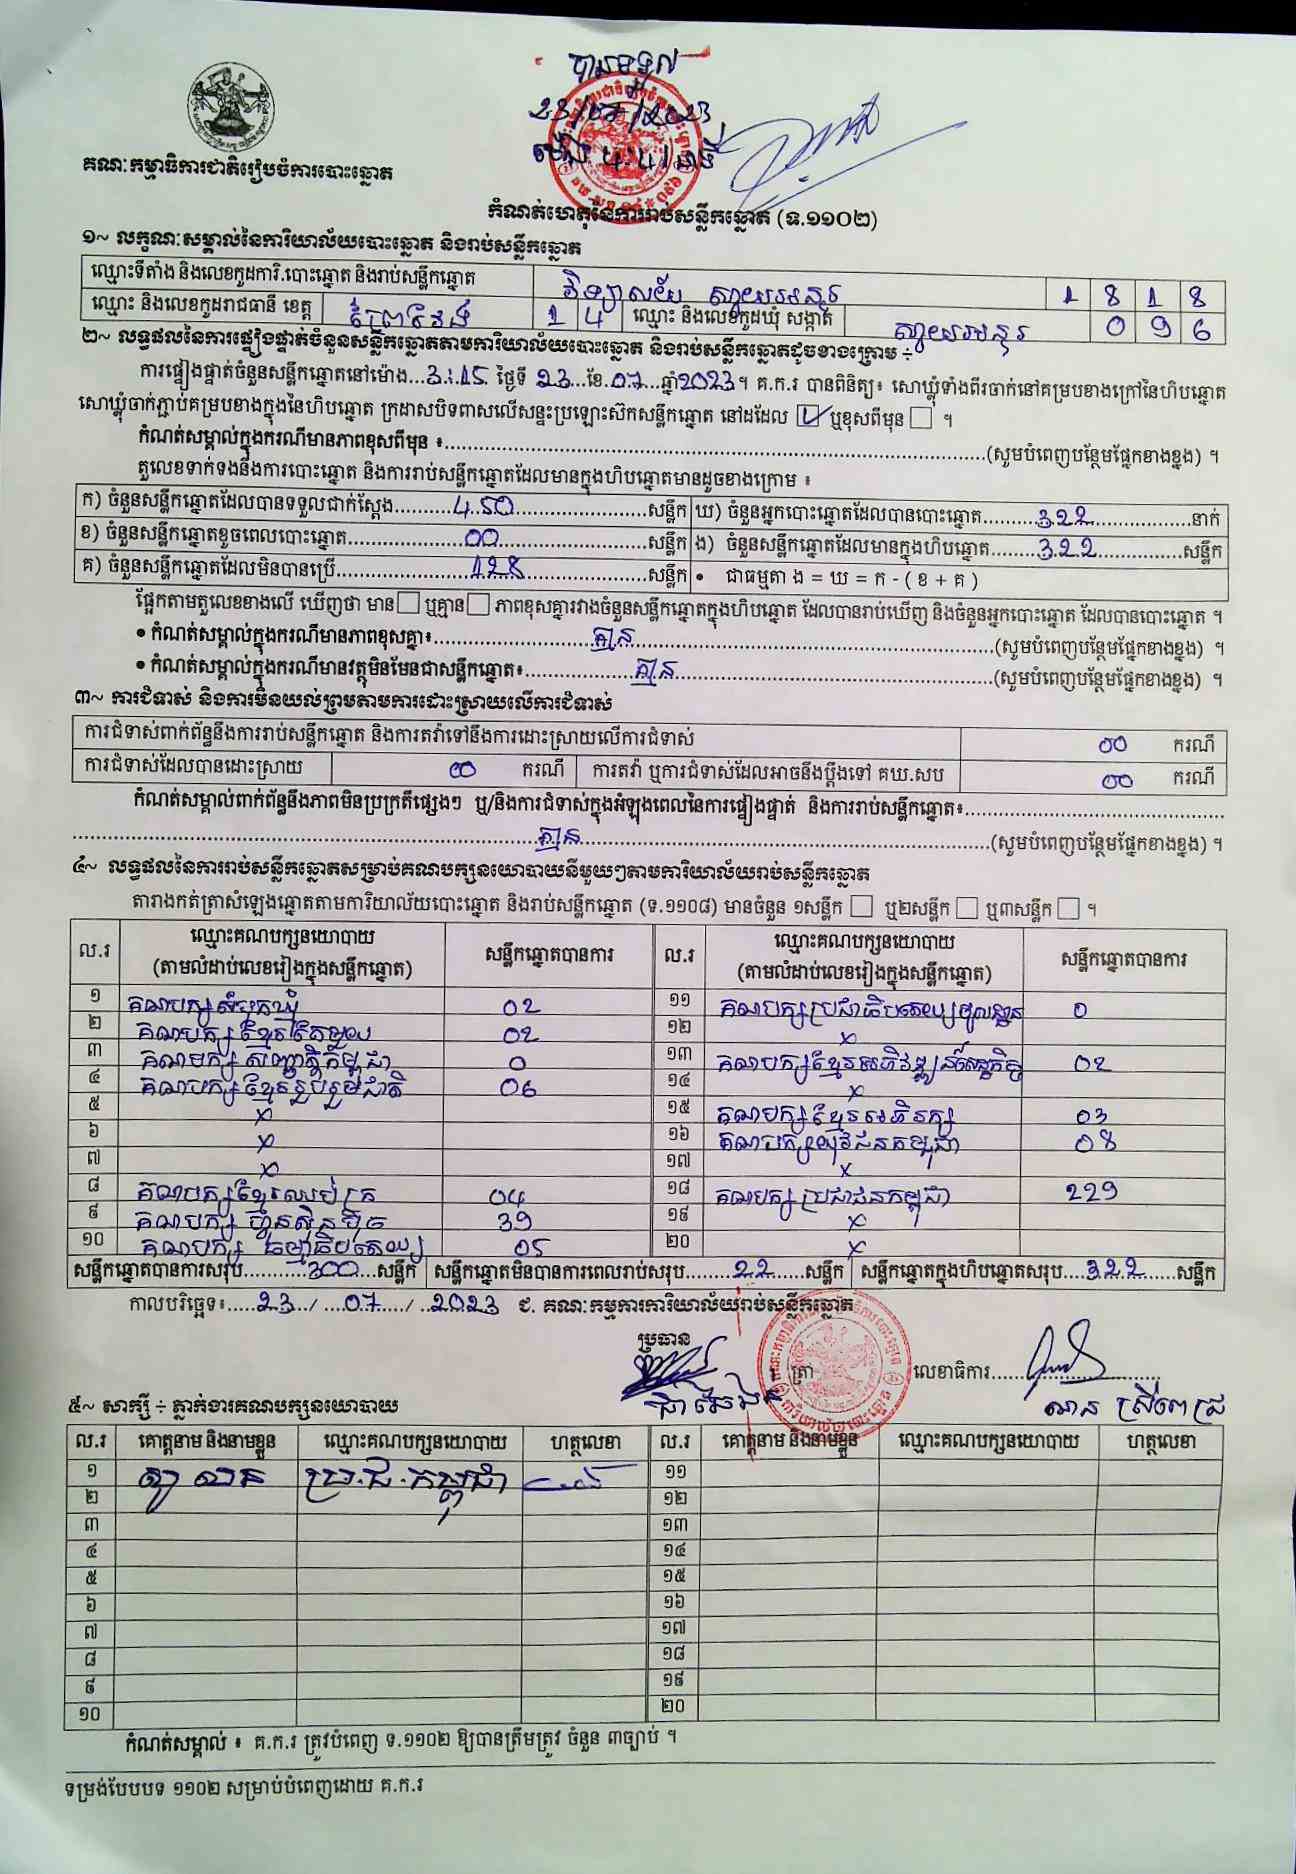 បានទទួល
23/07/2023
ម៉ោង 4:41 នាទី
គណៈកម្មាធិការជាតិរៀបចំការបោះឆ្នោត
កំណត់ហេតុនៃការរាប់សន្លឹកឆ្នោត (ទ.១១០២)
១~ លក្ខណៈសម្គាល់នៃការិយាល័យបោះឆ្នោត និងរាប់សន្លឹកឆ្នោត
ឈ្មោះទីតាំង និងលេខកូដការិ.បោះឆ្នោត និងរាប់សន្លឹកឆ្នោត វិទ្យាល័យ ស្វាយអន្ទរ 1 8 1 8
ឈ្មោះ និងលេខកូដរាជធានី ខេត្ត ព្រៃវែង 1 4 ឈ្មោះ និងលេខកូដឃុំ សង្កាត់ ស្វាយអន្ទរ 0 9 6
២~ លទ្ធផលនៃការផ្ទៀងផ្ទាត់ចំនួនសន្លឹកឆ្នោតតាមការិយាល័យបោះឆ្នោត និងរាប់សន្លឹកឆ្នោតដូចខាងក្រោម ÷
ការផ្ទៀងផ្ទាត់ចំនួនសន្លឹកឆ្នោតនៅម៉ោង...3:15 ថ្ងៃទី 23...ខែ.07...ឆ្នាំ2023។ គ.ក.រ បានពិនិត្យ៖ សោឃ្លុំទាំងពីរចាក់នៅគម្របខាងក្រៅនៃហិបឆ្នោត
សោឃ្លុំចាក់ភ្ជាប់គម្របខាងក្នុងនៃហិបឆ្នោត ក្រដាសបិទពាសលើសន្ទះប្រឡោះស៊កសន្លឹកឆ្នោត នៅដដែល ☑ ឬខុសពីមុន ☐ ។
កំណត់សម្គាល់ក្នុងករណីមានភាពខុសពីមុន ៖..........(សូមបំពេញបន្ថែមផ្នែកខាងខ្នង) ។
តួលេខទាក់ទងនឹងការបោះឆ្នោត និងការរាប់សន្លឹកឆ្នោតដែលមានក្នុងហិបឆ្នោតមានដូចខាងក្រោម ៖
ក) ចំនួនសន្លឹកឆ្នោតដែលបានទទួលជាក់ស្តែង..........450..........សន្លឹក ឃ) ចំនួនអ្នកបោះឆ្នោតដែលបានបោះឆ្នោត..........322..........នាក់
ខ) ចំនួនសន្លឹកឆ្នោតខូចពេលបោះឆ្នោត..........00..........សន្លឹក ង) ចំនួនសន្លឹកឆ្នោតដែលមានក្នុងហិបឆ្នោត..........322..........សន្លឹក
គ) ចំនួនសន្លឹកឆ្នោតដែលមិនបានប្រើ..........128..........សន្លឹក • ជាធម្មតា ង = ឃ = ក - ( ខ + គ )
ផ្អែកតាមតួលេខខាងលើ ឃើញថា មាន☐ ឬគ្មាន☐ ភាពខុសគ្នារវាងចំនួនសន្លឹកឆ្នោតក្នុងហិបឆ្នោត ដែលបានរាប់ឃើញ និងចំនួនអ្នកបោះឆ្នោត ដែលបានបោះឆ្នោត ។
• កំណត់សម្គាល់ក្នុងករណីមានភាពខុសគ្នា៖..........គ្មាន..........(សូមបំពេញបន្ថែមផ្នែកខាងខ្នង) ។
• កំណត់សម្គាល់ក្នុងករណីមានវត្ថុមិនមែនជាសន្លឹកឆ្នោត៖..........គ្មាន..........(សូមបំពេញបន្ថែមផ្នែកខាងខ្នង) ។
៣~ ការជំទាស់ និងការមិនយល់ព្រមតាមការដោះស្រាយលើការជំទាស់
ការជំទាស់ពាក់ព័ន្ធនឹងការរាប់សន្លឹកឆ្នោត និងការតវ៉ាទៅនឹងការដោះស្រាយលើការជំទាស់ 00 ករណី
ការជំទាស់ដែលបានដោះស្រាយ 00 ករណី ការតវ៉ា ឬការជំទាស់ដែលអាចនឹងប្តឹងទៅ គឃ.សប 00 ករណី
កំណត់សម្គាល់ពាក់ព័ន្ធនឹងភាពមិនប្រក្រតីផ្សេងៗ ឬ/និងការជំទាស់ក្នុងអំឡុងពេលនៃការផ្ទៀងផ្ទាត់ និងការរាប់សន្លឹកឆ្នោត៖..........
..........គ្មាន..........(សូមបំពេញបន្ថែមផ្នែកខាងខ្នង) ។
៤~ លទ្ធផលនៃការរាប់សន្លឹកឆ្នោតសម្រាប់គណបក្សនយោបាយនីមួយៗតាមការិយាល័យរាប់សន្លឹកឆ្នោត
តារាងកត់ត្រាសំឡេងឆ្នោតតាមការិយាល័យបោះឆ្នោត និងរាប់សន្លឹកឆ្នោត (ទ.១១០៨) មានចំនួន ១សន្លឹក ☐ ឬ២សន្លឹក ☐ ឬ៣សន្លឹក ☐ ។
ល.រ ឈ្មោះគណបក្សនយោបាយ (តាមលំដាប់លេខរៀងក្នុងសន្លឹកឆ្នោត) សន្លឹកឆ្នោតបានការ ល.រ ឈ្មោះគណបក្សនយោបាយ (តាមលំដាប់លេខរៀងក្នុងសន្លឹកឆ្នោត) សន្លឹកឆ្នោតបានការ
១ គណបក្សសំបុកឃ្មុំ 02 ១១ គណបក្សប្រជាធិបតេយ្យមូលដ្ឋាន 0
២ គណបក្សខ្មែរតែមួយ 02 ១២ x
៣ គណបក្ស សញ្ជាតិកម្ពុជា 0 ១៣ គណបក្សខ្មែរអភិវឌ្ឍន៍សេដ្ឋកិច្ច 02
៤ គណបក្សខ្មែររួបរួមជាតិ 06 ១៤ x
៥ x ១៥ គណបក្សខ្មែរអភិរក្ស 03
៦ x ១៦ គណបក្សយុវជនកម្ពុជា 08
៧ x ១៧ x
៨ គណបក្សខ្មែរឈប់ក្រ 04 ១៨ គណបក្សប្រជាជនកម្ពុជា 229
៩ គណបក្ស ហ្វ៊ុនស៊ិនប៉ិច 39 ១៩ x
១០ គណបក្ស ធម្មាធិបតេយ្យ 05 ២០ x
សន្លឹកឆ្នោតបានការសរុប..........300....សន្លឹក សន្លឹកឆ្នោតមិនបានការពេលរាប់សរុប........22......សន្លឹក សន្លឹកឆ្នោតក្នុងហិបឆ្នោតសរុប....322.......សន្លឹក
កាលបរិច្ឆេទ៖.....23.../...07..../...2023 ជ. គណៈកម្មការការិយាល័យរាប់សន្លឹកឆ្នោត
ប្រធាន
ត្រា លេខាធិការ..........
៥~ សាក្សី ÷ ភ្នាក់ងារគណបក្សនយោបាយ
ល.រ គោត្តនាម និងនាមខ្លួន ឈ្មោះគណបក្សនយោបាយ ហត្ថលេខា ល.រ គោត្តនាម និងនាមខ្លួន ឈ្មោះគណបក្សនយោបាយ ហត្ថលេខា
១ ប្រ.ជ.កម្ពុជា ១១
២ ១២
៣ ១៣
៤ ១៤
៥ ១៥
៦ ១៦
៧ ១៧
៨ ១៨
៩ ១៩
១០ ២០
កំណត់សម្គាល់ ៖ គ.ក.រ ត្រូវបំពេញ ទ.១១០២ ឱ្យបានត្រឹមត្រូវ ចំនួន ៣ច្បាប់ ។
ទម្រង់បែបបទ ១១០២ សម្រាប់បំពេញដោយ គ.ក.រ